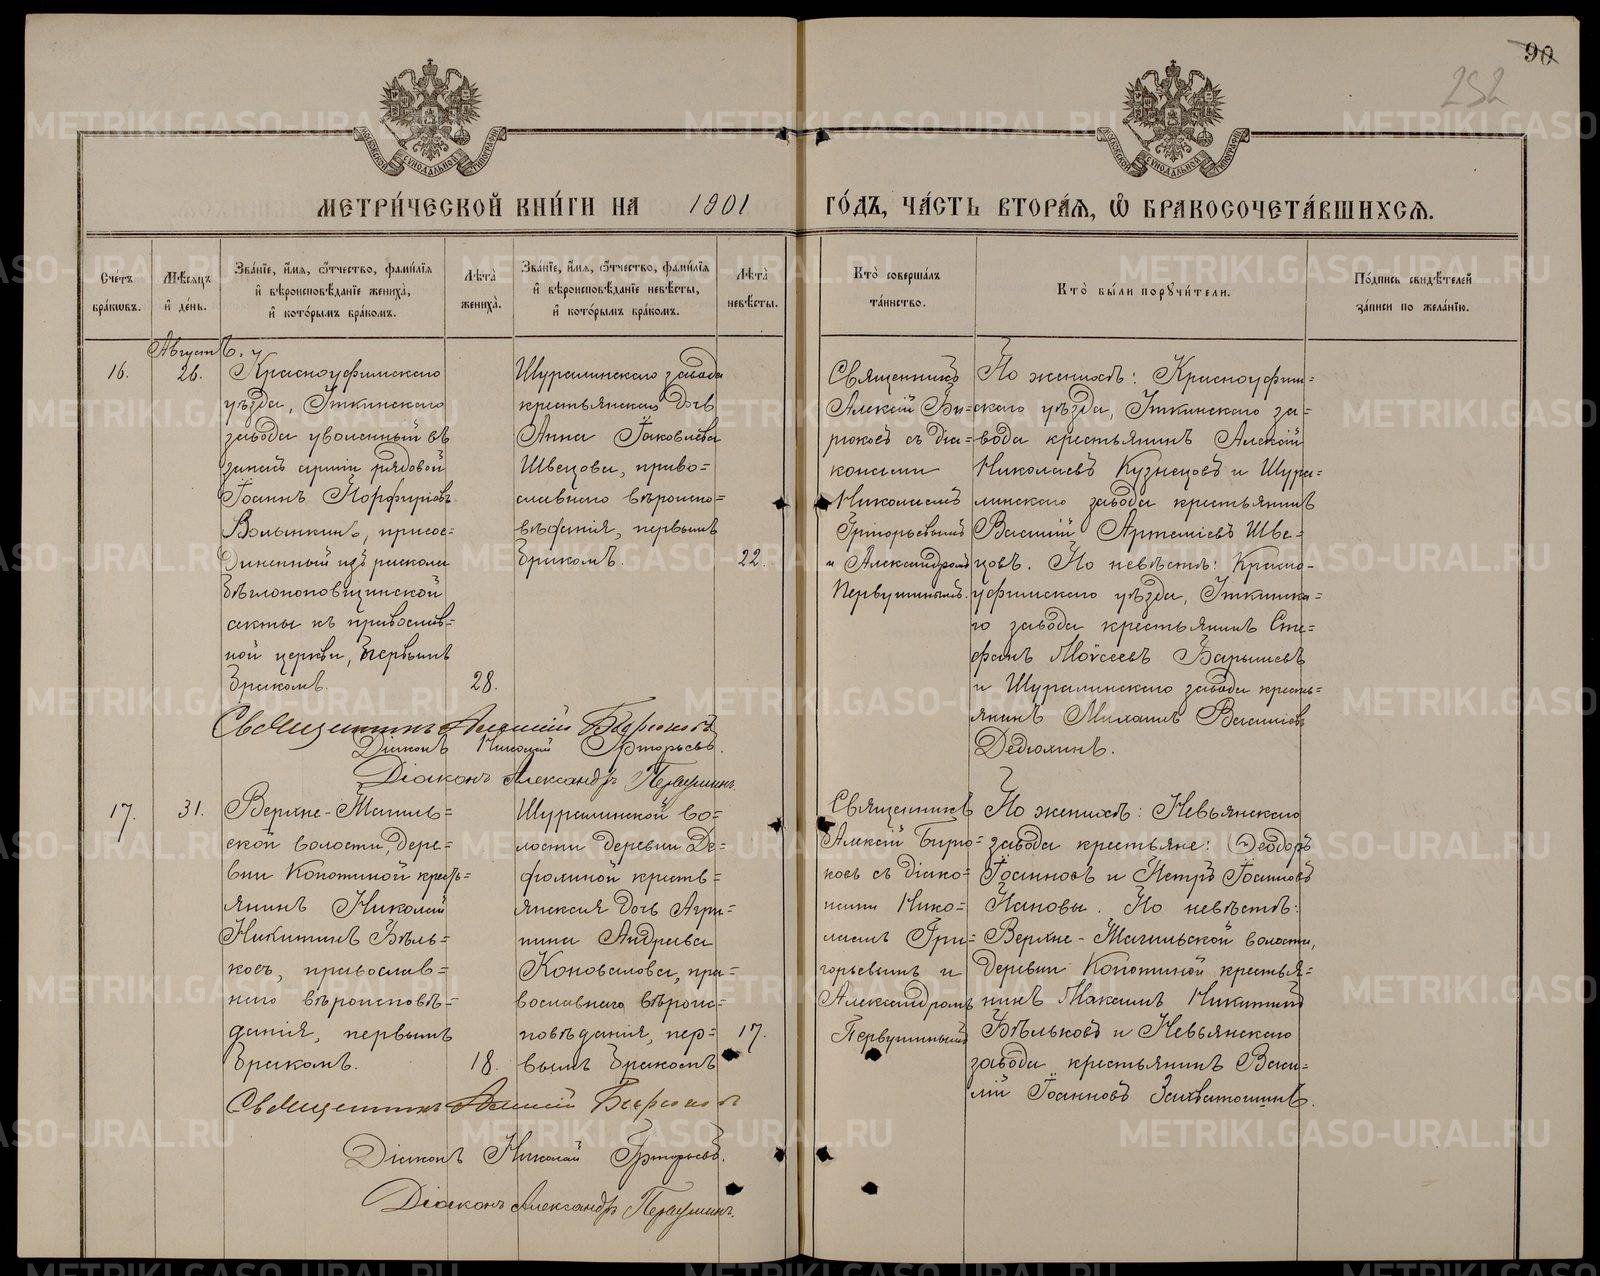 90
252
МЕТРИ́ЧЕСКОЙ КНИ́ГИ НА 1901 ГО́ДЪ, ЧА́СТЬ ВТОРА́Ѧ, Ѽ БРАКОСОЧЕТА́ВШИХСѦ.
Счетъ браковъ.
Мѣсяцъ и день.
Званіе, имя, отчество, фамилія
и вѣроисповѣданіе жениха,
и которымъ бракомъ.
Лѣта жениха.
Званіе, имя, отчество, фамилія
и вѣроисповѣданіе невѣсты,
и которымъ бракомъ.
Лѣта невѣсты.
Кто совершалъ
таинство.
Кто были поручители.
Подпись свидѣтелей
записи по желанію.
Августъ.
16.
26.
Красноуфимскаго
уѣзда, Уткинскаго
завода уволенный въ
запасъ арміи рядовой
Іоаннъ Порфиріевъ
Волынкинъ, присое=
диненный изъ раскола
бѣглопоповщинской
секты къ православ=
ной церкви, первымъ
бракомъ.
28.
Шуралинскаго завода
крестьянская дочь
Анна Іаковлева
Швецова, право=
славнаго вѣроиспо=
вѣданія, первымъ
бракомъ.
22.
Священникъ
Алексій Би=
рюковъ съ діа=
конами
Николаемъ
Григорьевымъ
и Александромъ
Первушинымъ.
По женихѣ: Красноуфим=
скаго уѣзда, Уткинскаго за=
вода крестьянинъ Алексій
Николаевъ Кузнецовъ и Шура=
линскаго завода крестьянинъ
Василій Артеміевъ Шве=
цовъ. По невѣстѣ: Красно=
уфимскаго уѣзда, Уткинска=
го завода крестьянинъ Сте=
фанъ Моѵсеевъ Барышевъ
и Шуралинскаго завода кресть=
янинъ Михаилъ Василіевъ
Дедюхинъ.
Священникъ Алексій Бирюковъ
Діаконъ Николай Григорьевъ.
Діаконъ Александръ Первушинъ.
17.
31.
Верхне-Тагиль=
ской волости, дере=
вни Копотиной кресть=
янинъ Николай
Никитинъ Бѣль=
ковъ, православ=
наго вѣроисповѣ=
данія, первымъ
бракомъ.
18.
Шуралинской во=
лости деревни Де=
фолиной кресть=
янская дочь Агри=
пина Андреева
Коновалова, пра=
вославнаго вѣроис=
повѣданія, пер=
вымъ бракомъ
17.
Священникъ
Алексій Бирю=
ковъ съ діако=
нами Нико=
лаемъ Гри=
горьевымъ и
Александромъ
Первушинымъ
По женихѣ: Невьянскаго
завода крестьяне: Ѳеодоръ
Іоанновъ и Петръ Іоанновъ
Пановы. По невѣстѣ:
Верхне-Тагильской волости,
деревни Копотиной крестья=
нинъ Максимъ Никитинъ
Бѣльковъ и Невьянскаго
завода крестьянинъ Васи=
лій Іоанновъ Захватошинъ.
Священникъ Алексій Бирюковъ
Діаконъ Николай Григорьевъ.
Діаконъ Александръ Первушинъ.
METRIKI.GASO-URAL.RU